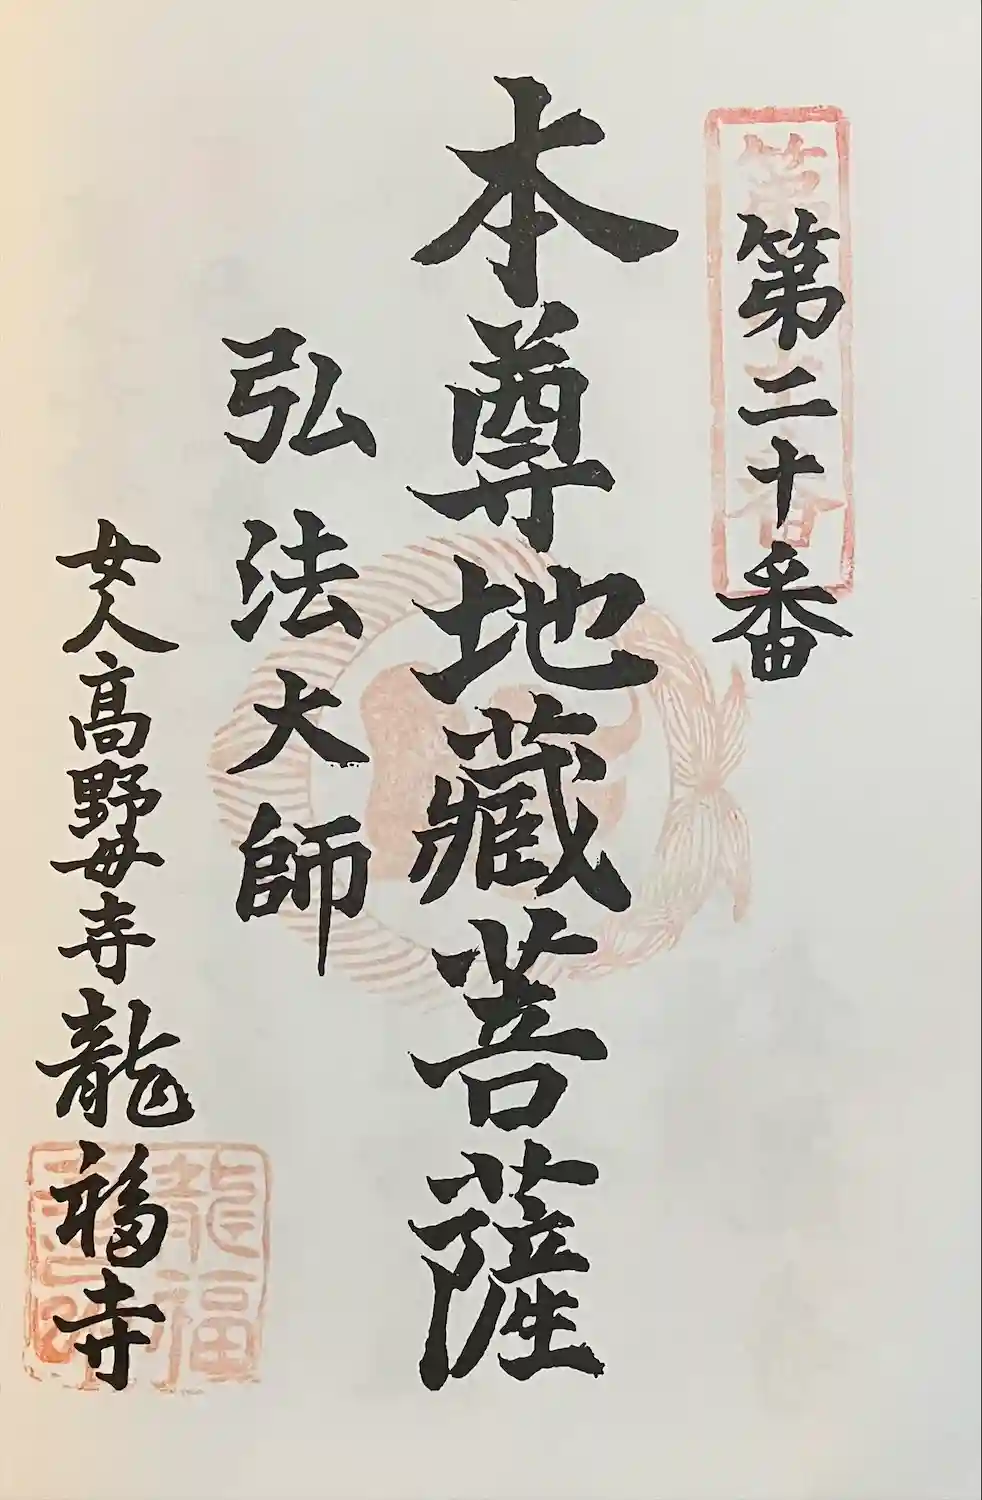 第二十番
本尊地藏菩薩
弘法大師
女人高野毋寺龍福寺
第二十番
龍福